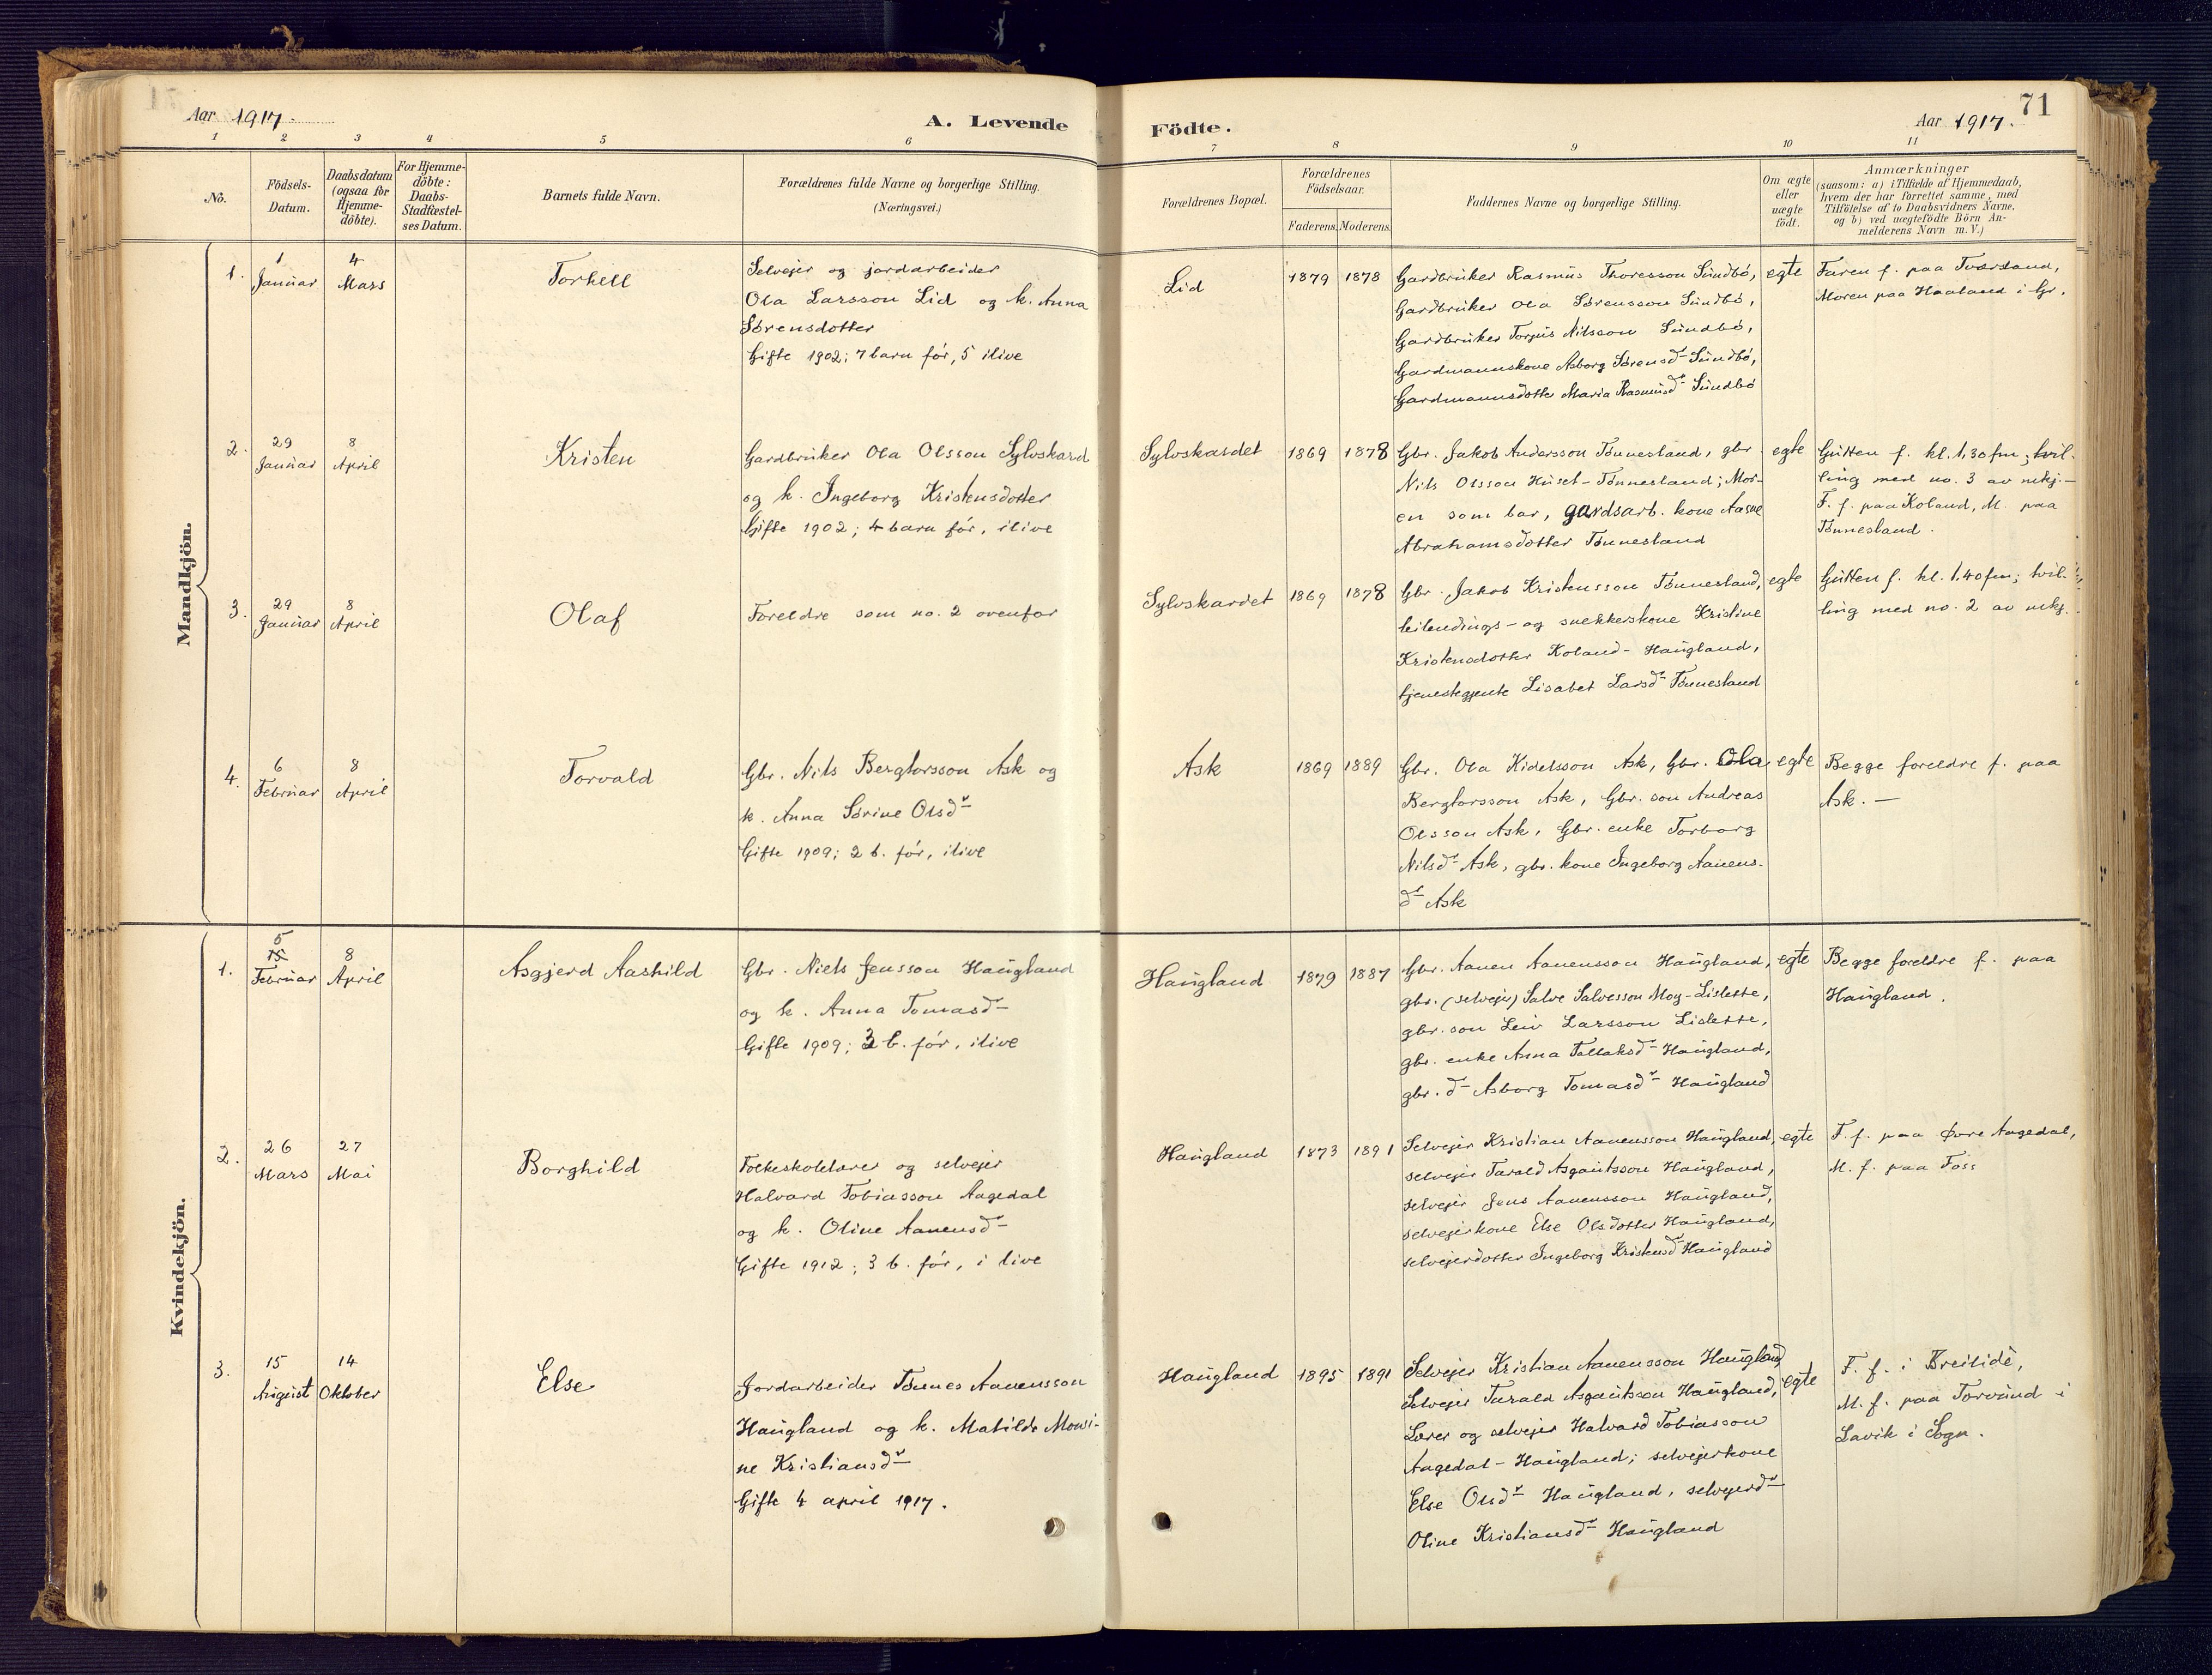 Aar 1917.
A. Levende
Födte.
Aar 1917.
71
1 2 3 4 5 6 7 8 9 10 11
No.
Födsels-
Datum.
Daabsdatum
(ogsaa for
Hjemme-
döbte).
For Hjemme-
döbte:
Daabs-
Stadfæstel-
ses Datum.
Barnets fulde Navn.
Forældrenes fulde Navne og borgerlige Stilling.
(Næringsvei.)
Forældrenes Bopæl.
Forældrenes
Födselsaar.
Faderens. Moderens.
Faddernes Navne og borgerlige Stilling.
Om ægte
eller
uægte
födt.
Anmærkninger
(saasom: a) i Tilfælde af Hjemmedaab,
hvem der har forrettet samme, med
Tilföielse af to Daabsvidners Navne.
og b) ved uægtefödte Börn An-
melderens Navn m. V.)
Mandkjön.
1.
1
Januar
4
Mars
Torkell
Selveier og jordarbeider
Ola Larsson Lid og k. Anna
Sørensdotter
Gifte 1902; 7 barn før, 5 ilive
Lid
1879
1878
Gardbruker Rasmus Thoresson Sundbø,
Gardbruker Ola Sørensson Sundbø,
Gardbruker Torjus Nilsson Sundbø,
Gardmannskone Asborg Sørensdr Sundbø,
Gardmannsdotte Maria Rasmusdr Sundbø
egte
Faren f. paa Tværland,
Moren paa Haaland i Gr.
2.
29
Januar
8
April
Kristen
Gardbruker Ola Olsson Sylvskard
og k. Ingeborg Kristensdotter
Gifte 1902; 4 barn før, ilive
Sylvskardet
1869
1878
Gbr. Jakob Andersson Tønnesland, gbr.
Nils Olsson Huset-Tønnesland; Mor-
en som bar, gardsarb. kone Aasne
Abrahamsdotter Tønnesland
egte
Gutten f. kl. 1.30 fm; tvil-
ling med no. 3 av mkj.-
F. f. paa Koland, M. paa
Tønnesland.
3.
29
Januar
8
April
Olaf
Foreldre som no. 2 ovenfor
Sylvskardet
1869
1878
Gbr. Jakob Kristensson Tønnesland,
leilendings- og snekkerskone Kristine
Kristensdotter Koland-Haugland,
tjenestegjente Lisabet Larsdr Tønnesland
egte
Gutten f. kl. 1.40 fm; tvil-
ling med no. 2 av mkj.
4.
6
Februar
8
April
Torvald
Gbr. Nils Bergtorsson Ask og
k. Anna Sørine Olsdr
Gifte 1909; 2 b. før, ilive
Ask
1869
1889
Gbr. Ola Kidelsson Ask, Gbr. Ola
Bergtorsson Ask, Gbr. son Andreas
Olsson Ask, Gbr. enke Torborg
Nilsdr Ask, gbr. kone Ingeborg Aanens-
dr Ask
egte
Begge foreldre f. paa
Ask. —
Kvindekjön.
1.
5
15
Februar
8
April
Asgjerd Aashild
Gbr. Niels Jensson Haugland
og k. Anna Tomasdr
Gifte 1909; 3 b. før, ilive
Haugland
1879
1887
Gbr. Aanen Aanensson Haugland,
gbr. (selveier) Salve Salvesson Moy-Lislette,
gbr. son Leiv Larsson Lislette,
gbr. enke Anna Tallaksdr Haugland,
gbr. dr Asborg Tomasdr Haugland
egte
Begge foreldre f. paa
Haugland.
2.
26
Mars
27
Mai
Borghild
Folkeskolelærer og selvejer
Halvard Tobiasson Aagedal
og k. Oline Aanensdr
Gifte 1912; 3 b. før, i live
Haugland
1873
1891
Selvejer Kristian Aanensson Haugland,
selvejer Tarald Asgautsson Haugland,
selvejer Jens Aanensson Haugland,
selvejerkone Else Olsdotter Haugland,
selvejerdotter Ingeborg Kristensdr Haugland
egte
F. f. paa Øvre Aagedal,
M. f. paa Foss
3.
15
August
14
Oktober
Else
Jordarbeider Tønnes Aanensson
Haugland og k. Matilde Mowi-
ne Kristiansdr
Gifte 4 april 1917.
Haugland
1895
1891
Selvejer Kristian Aanensson Haugland
Selvejer Tarald Asgautsson Haugland,
Lærer og selvejer Halvard Tobiasson
Aagedal-Haugland; selvejerkone
Else Olsdr Haugland, selvejerdr
Oline Kristiansdr Haugland
egte
F. f. i Breilidi,
M. f. paa Torvund i
Lavik i Sogn.